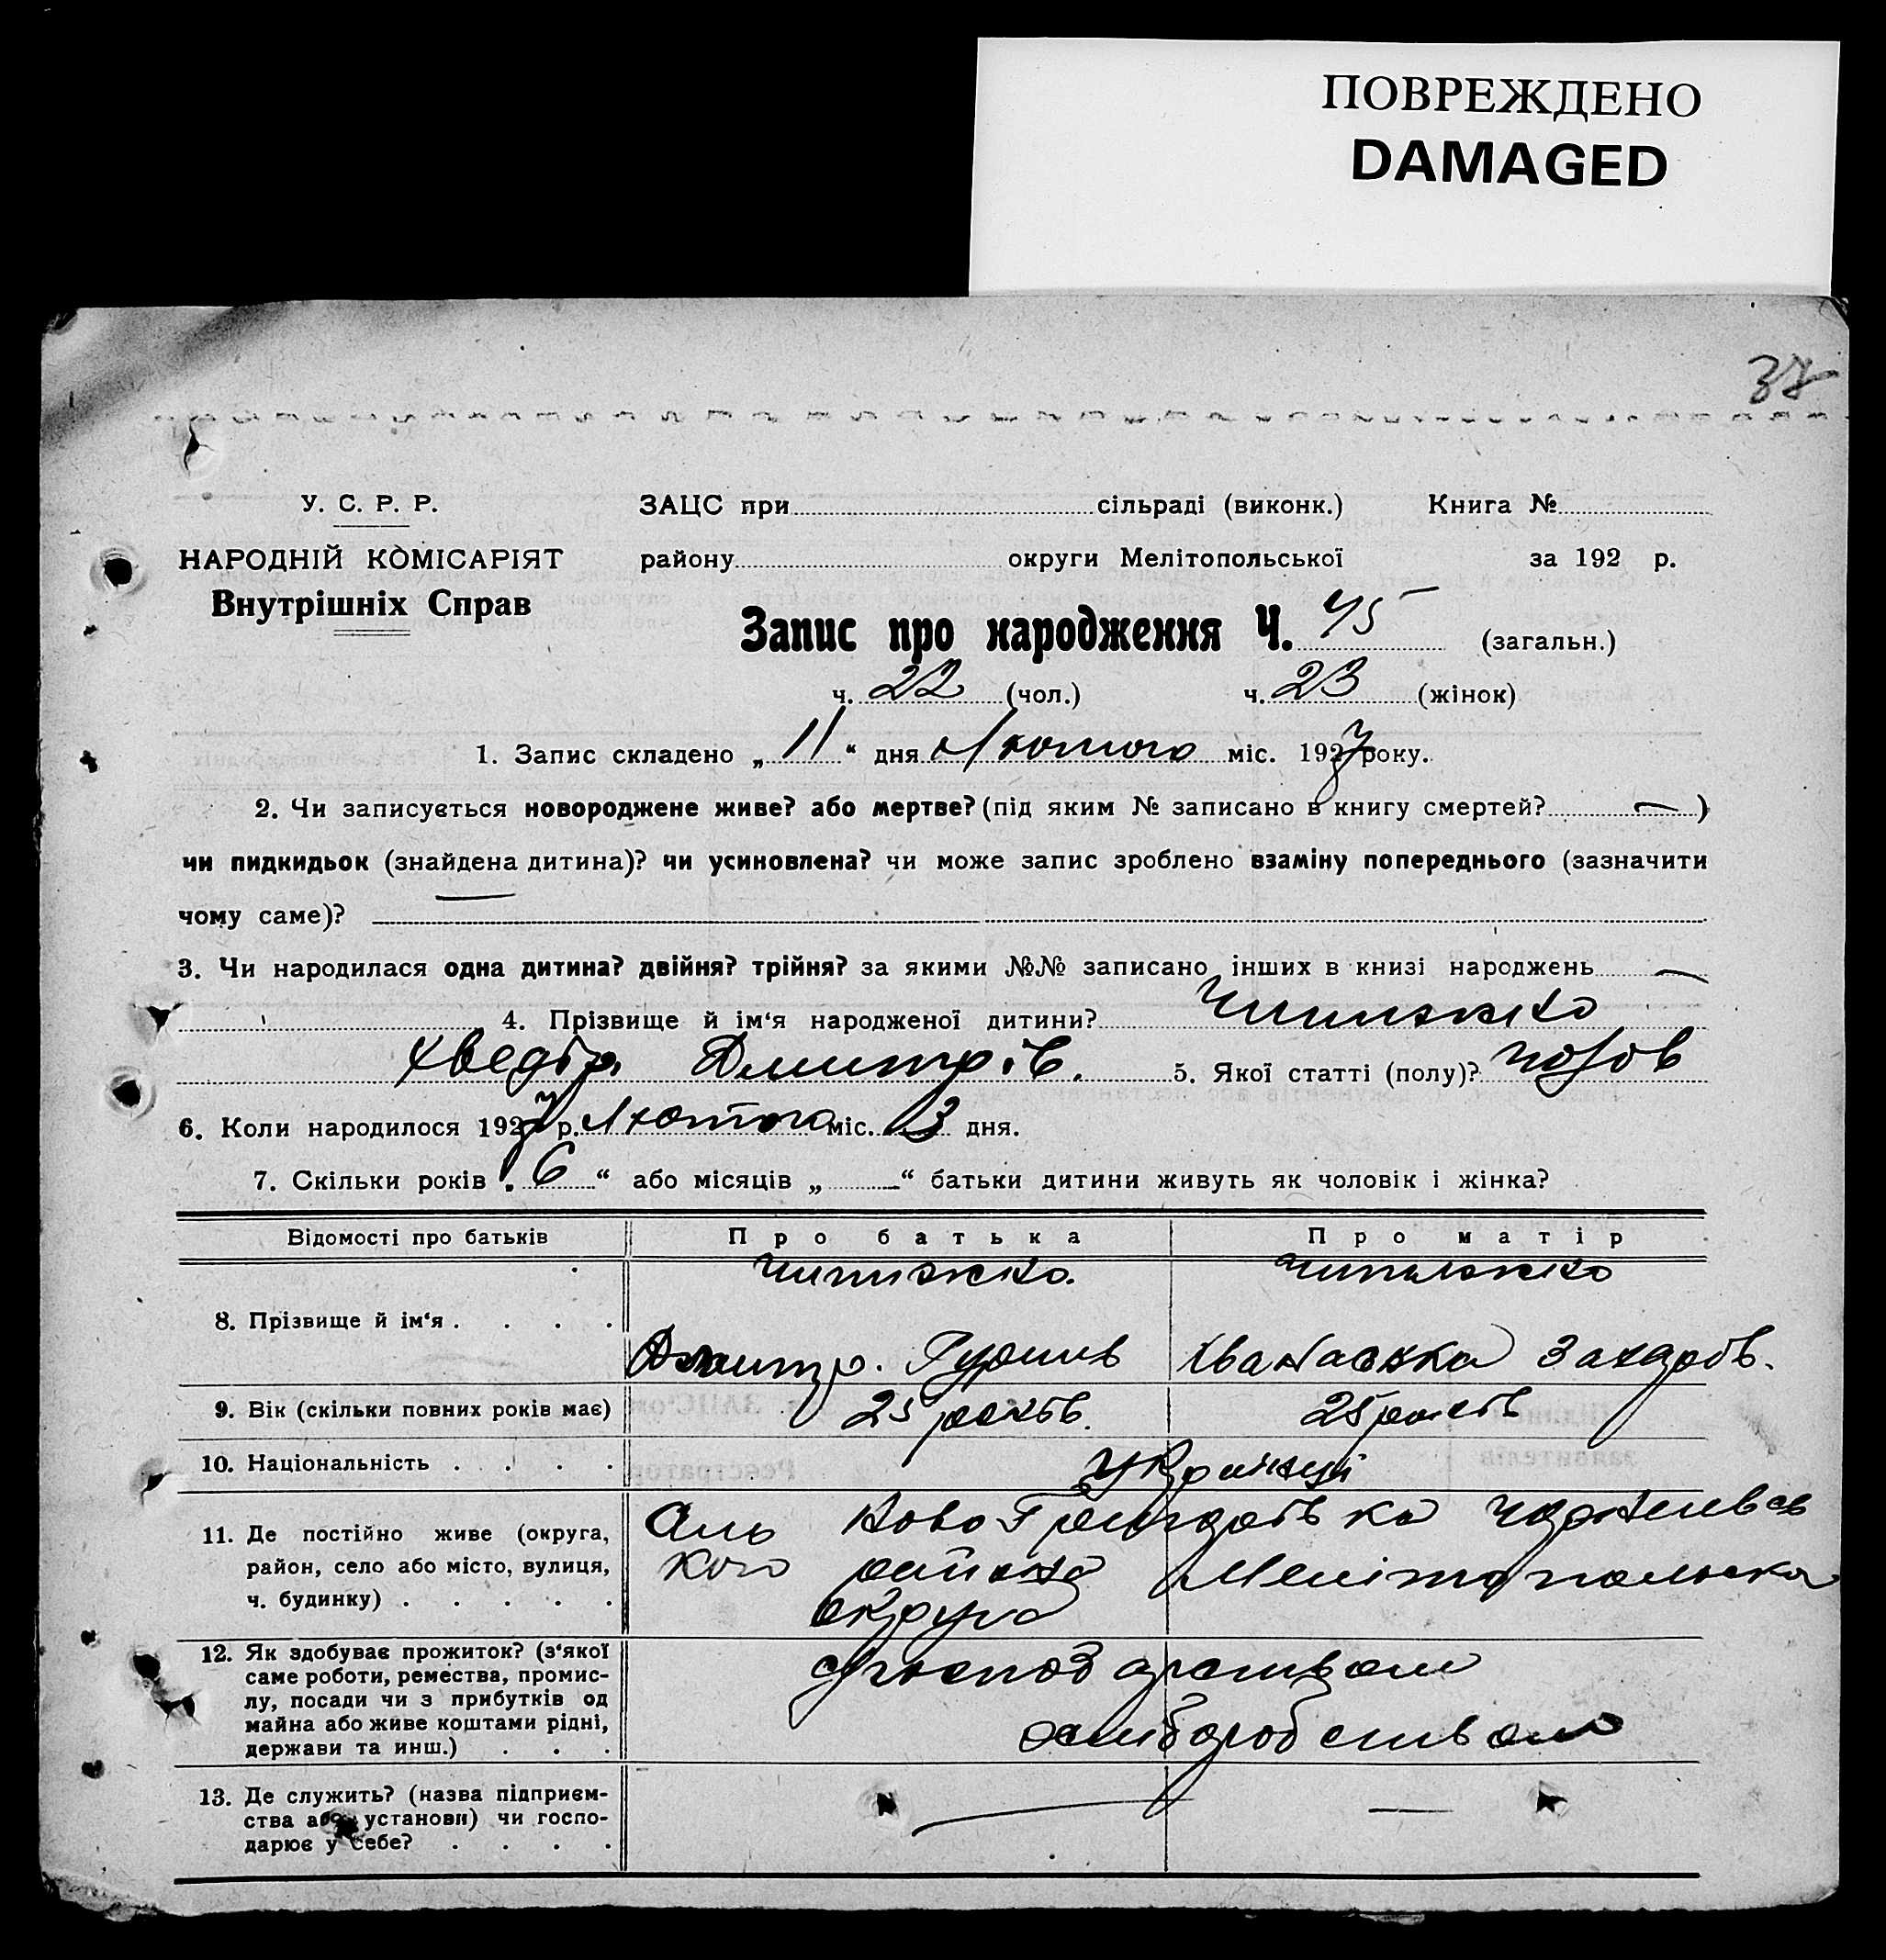 ПОВРЕЖДЕНО
DAMAGED
37
У. С. Р. Р. ЗАЦС при сільраді (виконк.) Книга №
НАРОДНІЙ КОМІСАРІЯТ району округи Мелітопольської за 192 р.
Внутрішніх Справ
Запис про народження Ч. 45 (загальн.)
ч. 22 (чол.) ч. 23 (жінок)
1. Запис складено „ 11 “ дня Лютого міс. 1927 року.
2. Чи записується новороджене живе? або мертве? (під яким № записано в книгу смертей? — )
чи пидкидьок (знайдена дитина)? чи усиновлена? чи може запис зроблено взаміну попереднього (зазначити
чому саме)? —
3. Чи народилася одна дитина? двійня? трійня? за якими №№ записано інших в книзі народжень —
4. Прізвище й ім‘я народженої дитини? Чипижко
Хведір Дмитрів. 5. Якої статті (полу)? чолов
6. Коли народилося 1927 р. Лютого міс. 3 дня.
7. Скільки років „ 6 “ або місяців „ “ батьки дитини живуть як чоловік і жінка?
Відомості про батьків Про батька Про матір
Чипижко. Чипижко
8. Прізвище й ім‘я . . . .
Дмитро Захаров.
9. Вік (скільки повних років має) 25 років. 25 років
10. Національність . . . . Українці
11. Де постійно живе (округа,
район, село або місто, вулиця,
ч. будинку) . . . . .
район Мелітопольска
округа
12. Як здобуває прожиток? (з‘якої
саме роботи, ремества, промис-
лу, посади чи з прибутків од
майна або живе коштами рідні,
держави та инш.) . . .
с/господарством
хліборобством
13. Де служить? (назва підприєм-
ства або установи) чи госпо-
дарює у себе? . . . . — —